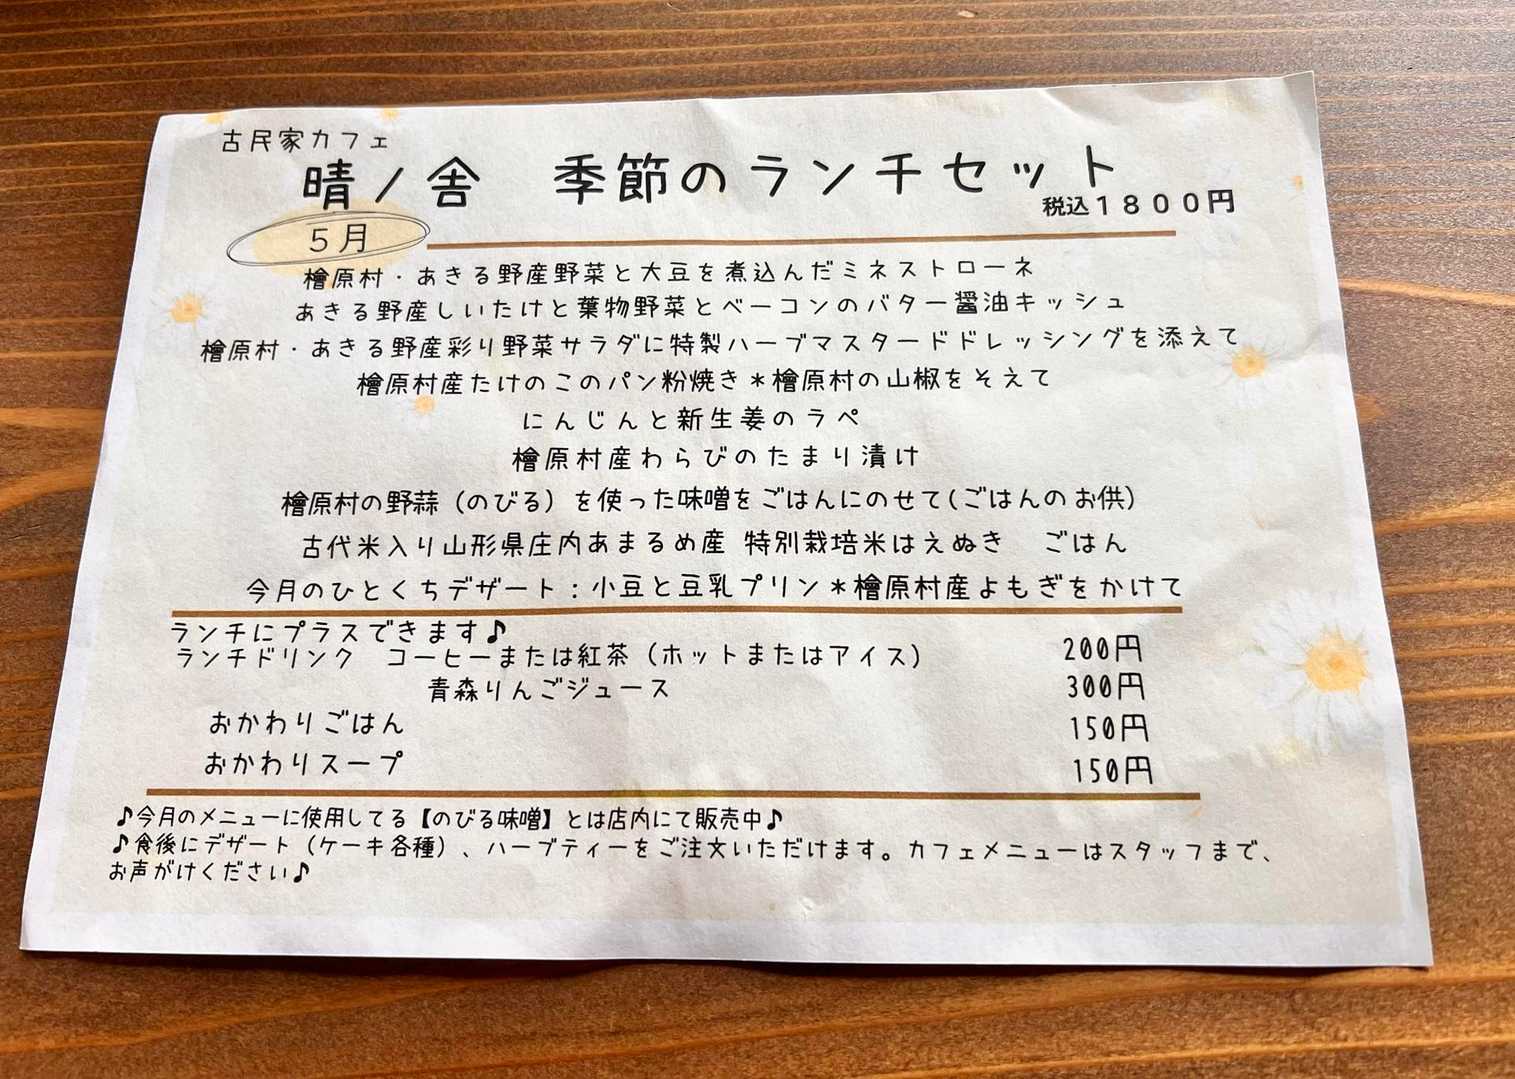 古民家カフェ
晴ノ舎　季節のランチセット
税込１８００円
５月
檜原村・あきる野産野菜と大豆を煮込んだミネストローネ
あきる野産しいたけと葉物野菜とベーコンのバター醤油キッシュ
檜原村・あきる野産彩り野菜サラダに特製ハーブマスタードドレッシングを添えて
檜原村産たけのこのパン粉焼き＊檜原村の山椒をそえて
にんじんと新生姜のラペ
檜原村産わらびのたまり漬け
檜原村の野蒜（のびる）を使った味噌をごはんにのせて(ごはんのお供)
古代米入り山形県庄内あまるめ産 特別栽培米はえぬき　ごはん
今月のひとくちデザート：小豆と豆乳プリン＊檜原村産よもぎをかけて
ランチにプラスできます♪
ランチドリンク　コーヒーまたは紅茶（ホットまたはアイス）　200円
青森りんごジュース　300円
おかわりごはん　150円
おかわりスープ　150円
♪今月のメニューに使用してる【のびる味噌】とは店内にて販売中♪
♪食後にデザート（ケーキ各種）、ハーブティーをご注文いただけます。カフェメニューはスタッフまで、
お声がけください♪